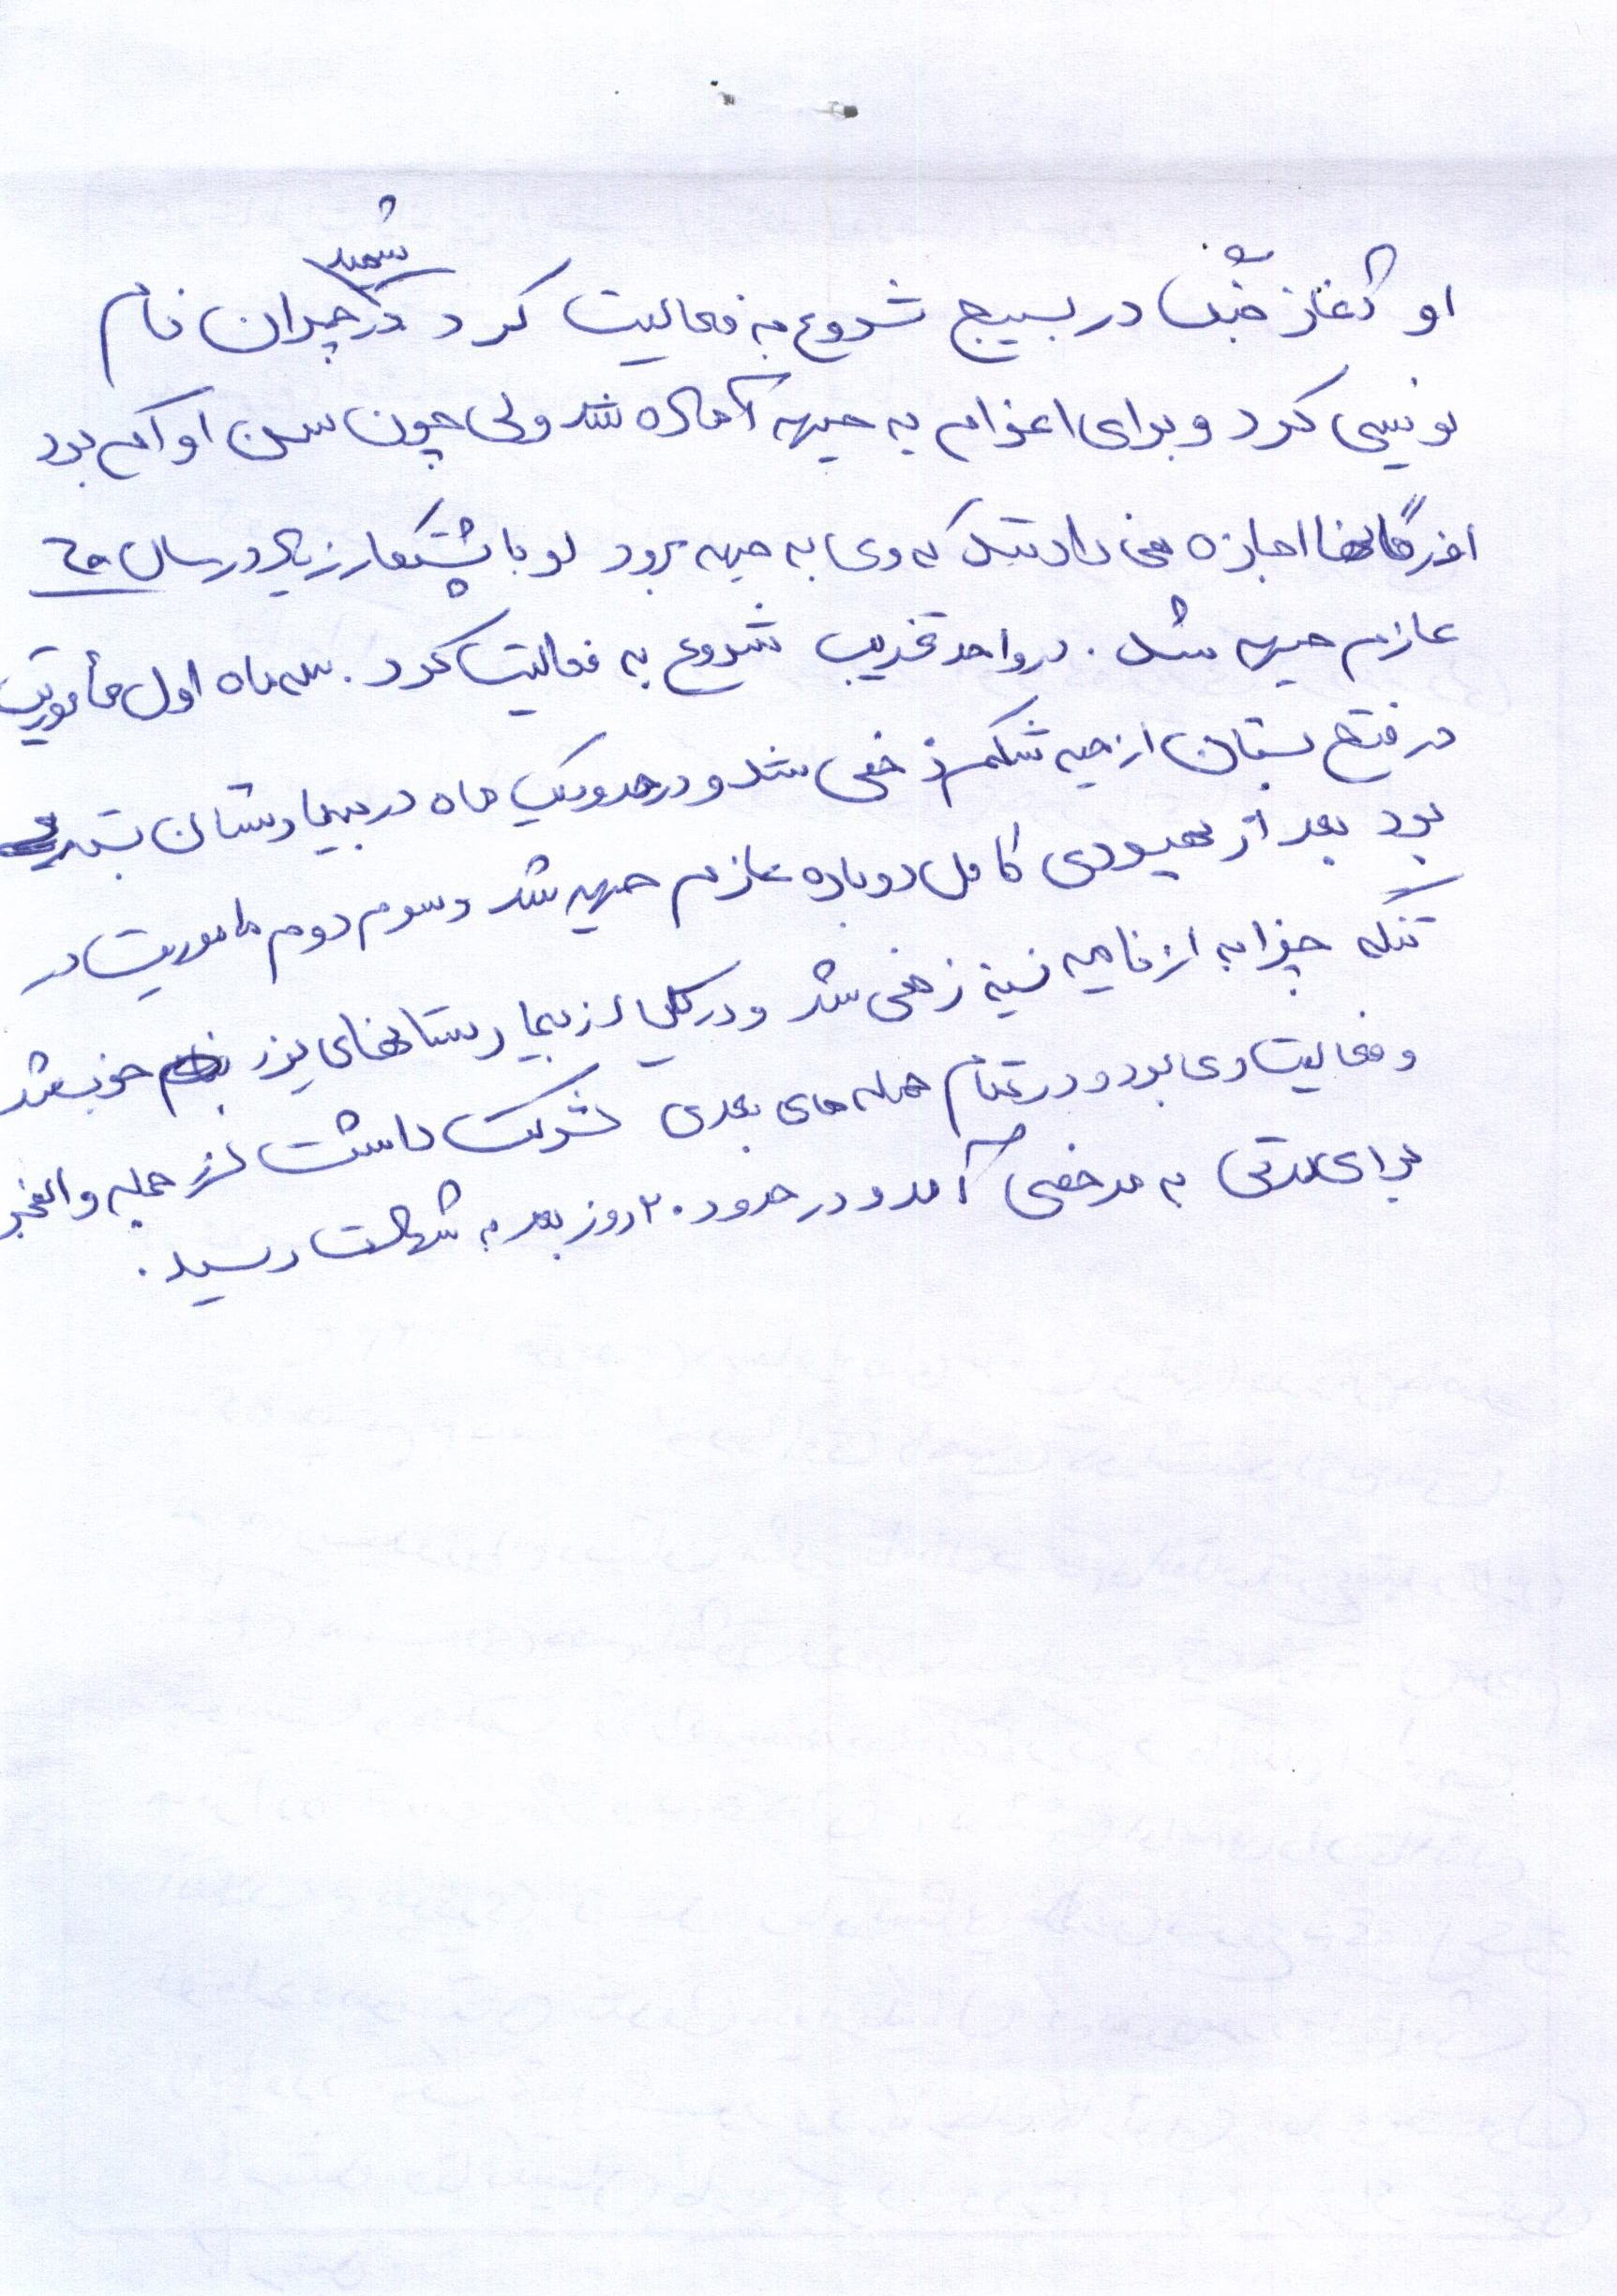 او آغاز جنگ در بسیج شروع به فعالیت کرد در شهید چمران نام
نویسی کرد و برای اعزام به جبهه آماده شد ولی چون سن او کم بود
اجازه نمی دادند که وی به جبهه برود او با پشتکار زیاد در سال ۶۰
عازم جبهه شد . در واحد تخریب شروع به فعالیت کرد . سه ماه اول مأموریت
در فتح بستان از جبه شکم زخمی شد و در حدود یک ماه در بیمارستان بستری
بود بعد از بهبودی کامل دوباره عازم جبهه شد و سوم دوم ماموریت در
تنگه چزابه از ناحیه سینه زخمی شد و در یکی از بیمارستانهای یزد خوب شد
و فعالیت وی بود و در تمام حمله های بعدی شرکت داشت از جمله والفجر
برای مدتی به مرخصی آمد و در حدود ۲۰ روز بعد به شهادت رسید .